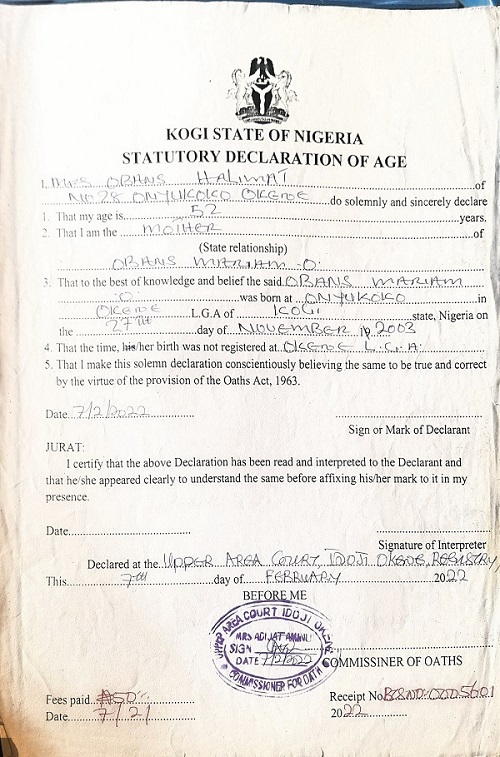 KOGI STATE OF NIGERIA
STATUTORY DECLARATION OF AGE
I, MRS OBANS HALIMAT of
NO 28 ONYUKOKO OKENE do solemnly and sincerely declare
1. That my age is 52 years.
2. That I am the MOTHER of
(State relationship)
OBANS MARIAM O.
3. That to the best of knowledge and belief the said OBANS MARIAM
O. was born at ONYUKOKO in
OKENE L.G.A of KOGI state, Nigeria on
the 27TH day of NOVEMBER 2003
4. That the time, his/her birth was not registered at OKENE L.G.A.
5. That I make this solemn declaration conscientiously believing the same to be true and correct
by the virtue of the provision of the Oaths Act, 1963.
Date 7/2/2022
Sign or Mark of Declarant
JURAT:
I certify that the above Declaration has been read and interpreted to the Declarant and
that he/she appeared clearly to understand the same before affixing his/her mark to it in my
presence.
Date
Signature of Interpreter
Declared at the UPPER AREA COURT, IDOJI OKENE, REGISTRY
This 7TH day of FEBRUARY 2022
BEFORE ME
UPPER AREA COURT IDOJI OKENE
MRS ADIJAT AMINU
SIGN
DATE 7/2/2022
COMMISSIONER FOR OATH
COMMISSINER OF OATHS
Fees paid ₦50
Receipt No
Date 7/2/
2022